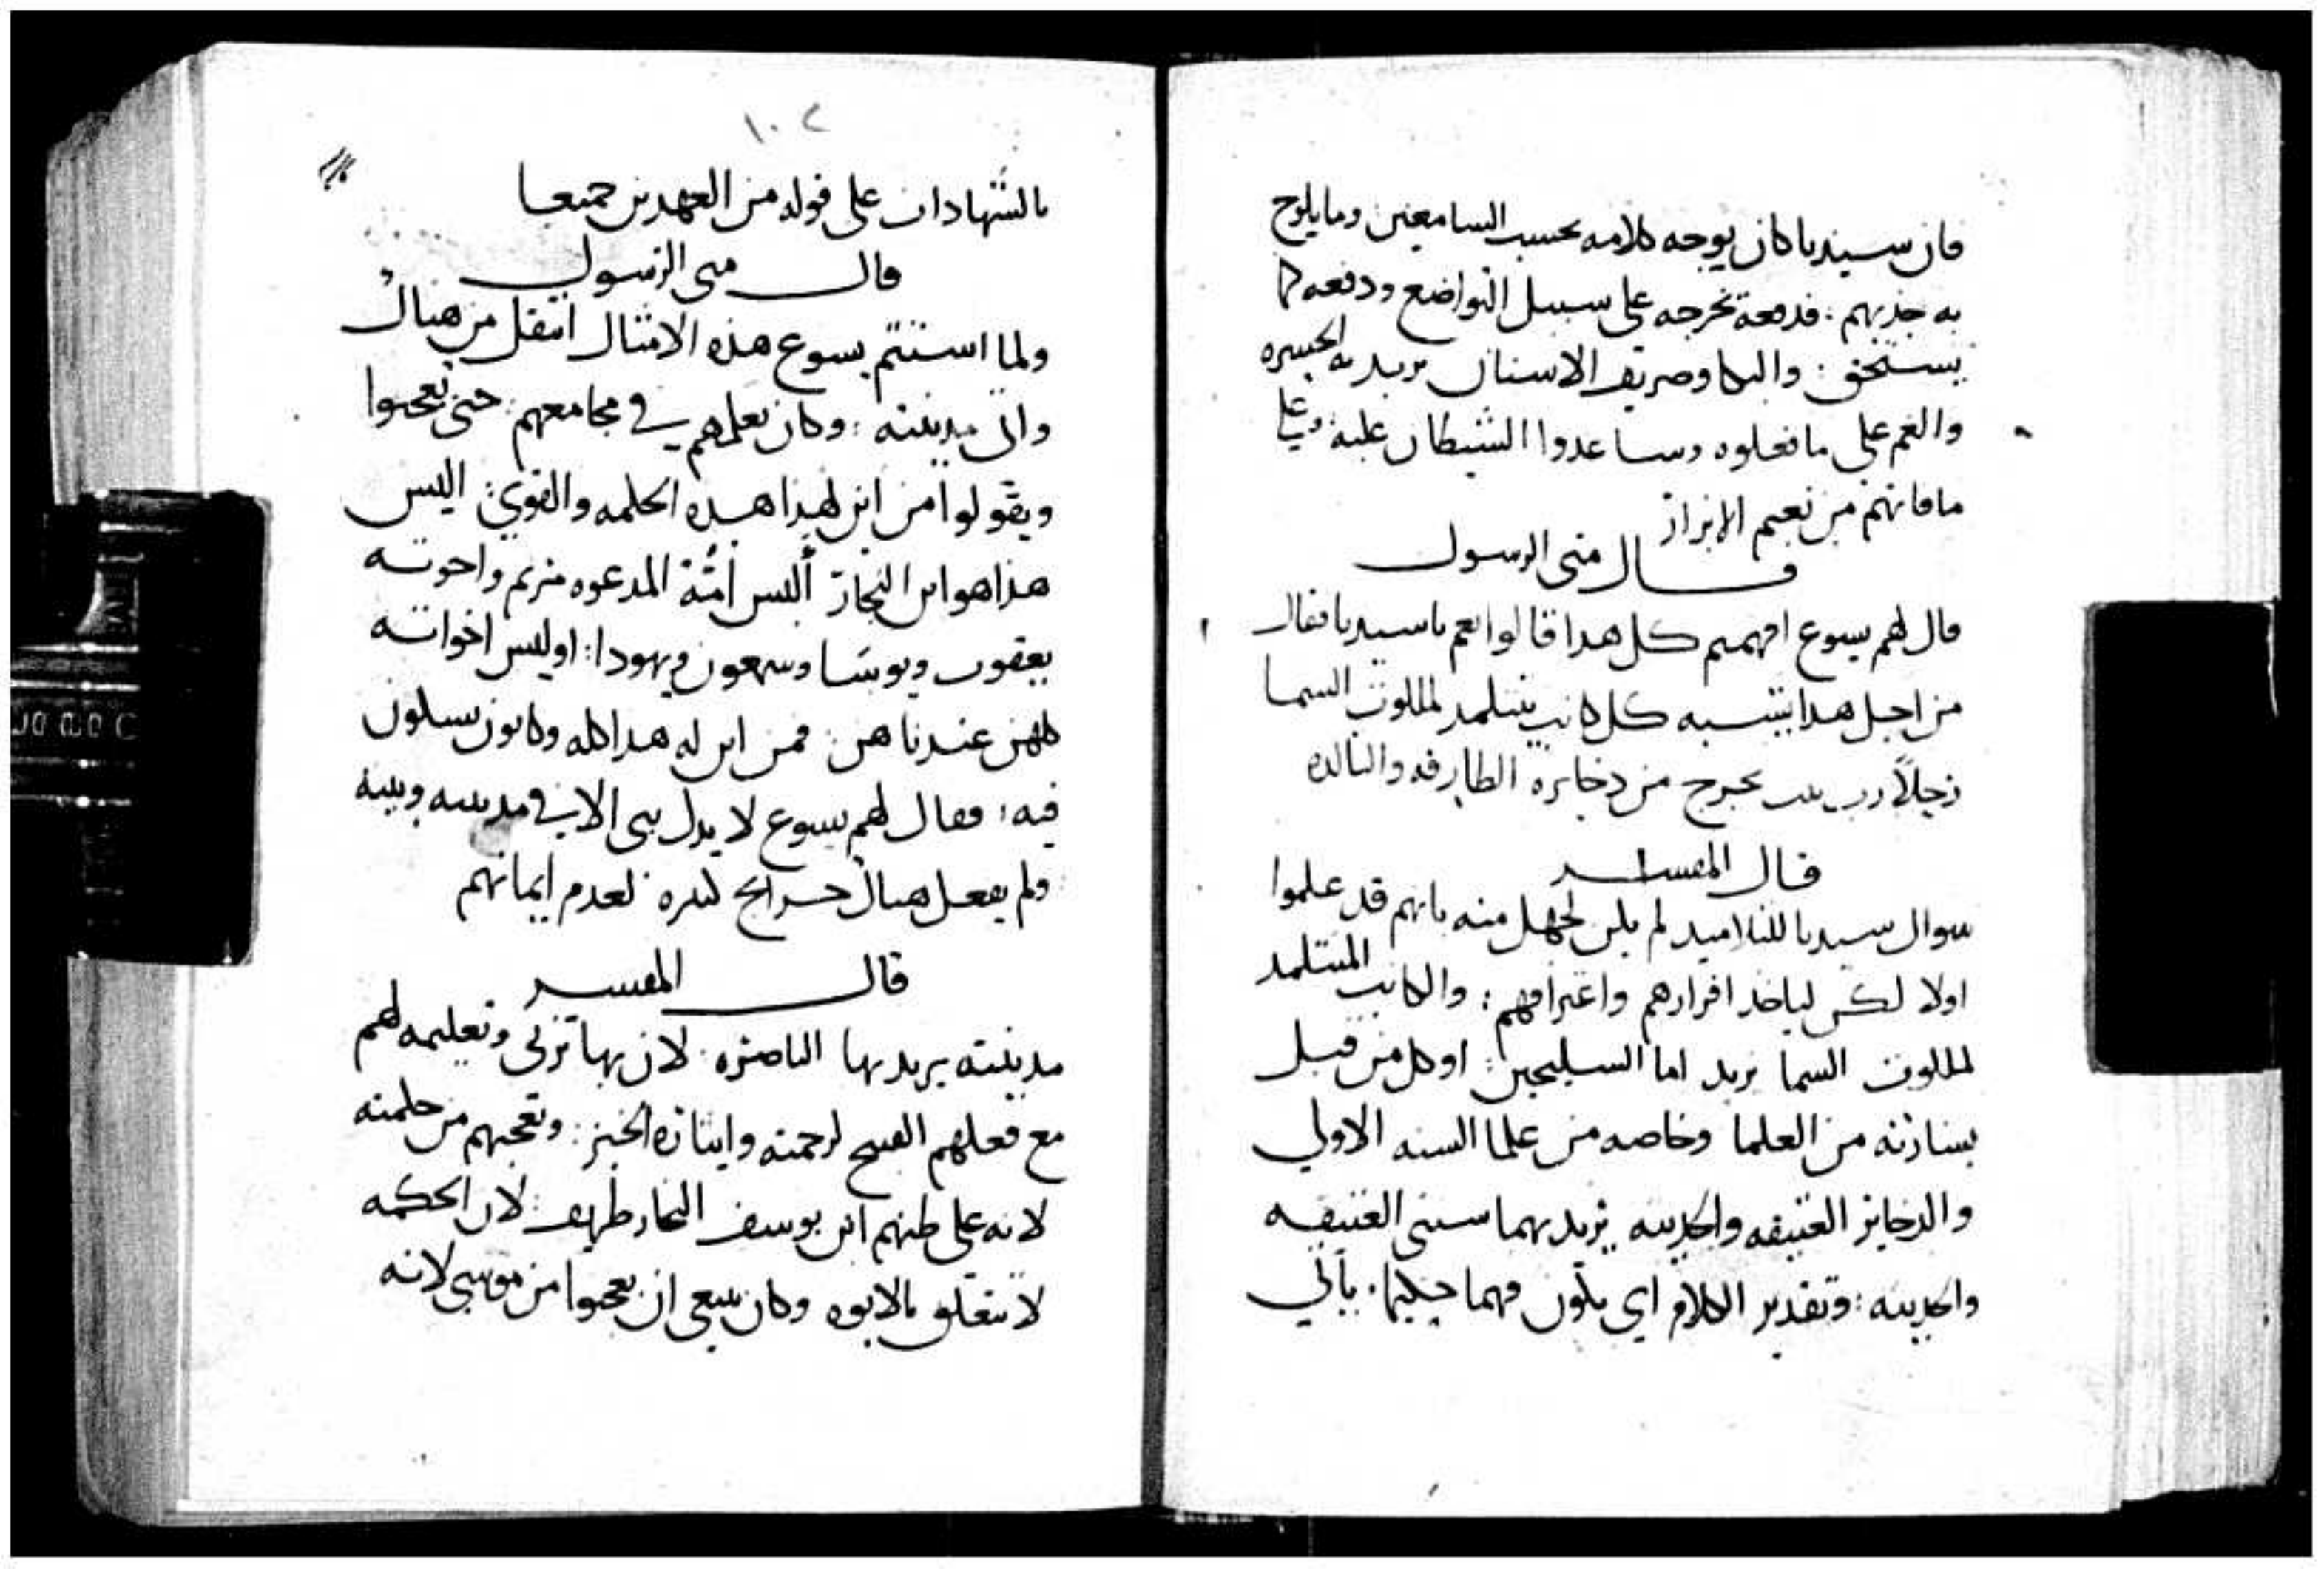 فان سيدنا كان يوجه كلامه بحسب السامعين وما يلوح
به جذبهم . فدفعة يخرجه على سبيل التواضع ودفعه كما
يستحق : والبكا وصريف الاسنان يريد به الحسره
والغم على ما فعلوه وساعدوا الشيطان عليه وعلى
ما فاتهم من نعيم الابرار
قال متى الرسول
قال لهم يسوع افهمتم كل هدا قالوا نعم يا سيدنا فقال
من اجل هدا يتشبه كل كاتب يتتلمد لملكوت السما
رجلاً رب بيت يخرج من دخايره الطارفه والتالده
قال المفسر
سوال سيدنا للتلاميد لم يكن لجهل منه بانهم قد علموا
اولا لكن لياخد اقرارهم واعترافهم : والكاتب المتتلمد
لملكوت السما يريد اما السليحين : او كل من قبل
بشارته من العلما وخاصه من علما السنه الاولي
والدخاير العتيقه والحديثه يريد بهما سنتي العتيقه
والحديثه : وتقدير الكلام اي يكون فهما حكيما . يأتي
١٠٢
بالشهادات على قوله من العهدين جميعا
قال متى الرسول
ولما استتم يسوع هذه الامثال انتقل من هناك
واتى مدينته : وكان يعلمهم في مجامعهم : حتى تعجبوا
ويقولوا من اين لهذا هذه الحكمه والقوي : اليس
هذا هو ابن النجار أليس أمّة المدعوه مريم واخوته
يعقوب ويوسا وسمعون ويهودا : اوليس اخواته
كلهن عندنا هن : فمن اين له هدا كله وكانوا يشكون
فيه : فقال لهم يسوع لا يدل نبي الا في مدينته وبيته
ولم يفعل هناك جرايح كثيره لعدم ايمانهم
قال المفسر
مدينته يريد بها الناصره : لان بها تربى وتعليمه لهم
مع فعلهم القبيح لرحمته وايثاره الخير : وتعجبهم من حكمته
لانه على ظنهم ابن يوسف النجار طريف : لان الحكمه
لا تتعلق بالابوه وكان ينبغي ان يعجبوا من موسي لانه